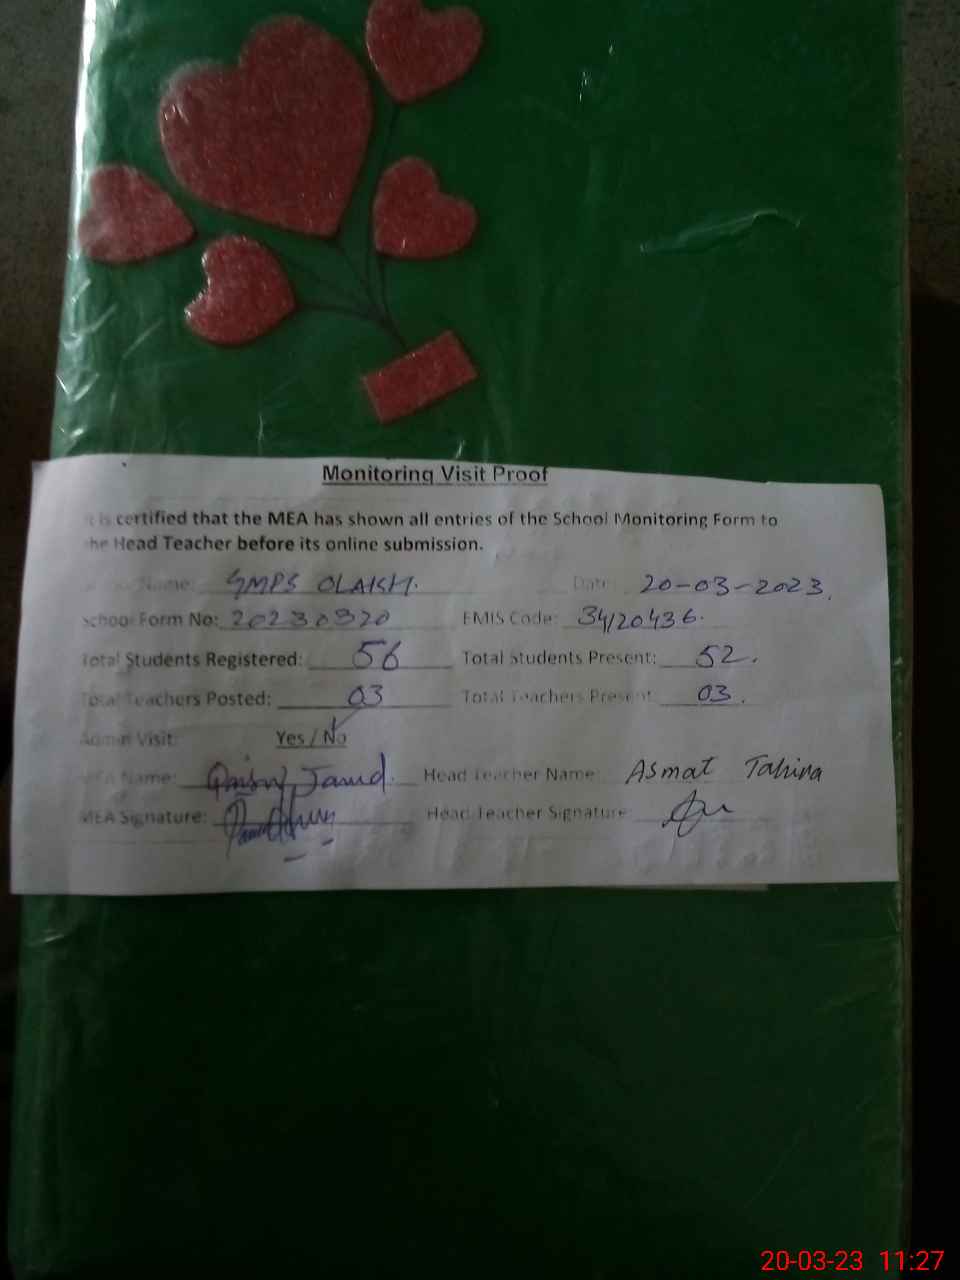 Monitoring Visit Proof
It is certified that the MEA has shown all entries of the School Monitoring Form to
the Head Teacher before its online submission.
School Name: GMPS OLAKH. Date: 20-03-2023.
School Form No: 20230320 EMIS Code: 34120436.
Total Students Registered: 56 Total Students Present: 52.
Total Teachers Posted: 03 Total Teachers Present: 03.
Admin Visit: Yes / No
MEA Name: Head Teacher Name: Asmat Tahira
MEA Signature: Head Teacher Signature:
20-03-23 11:27